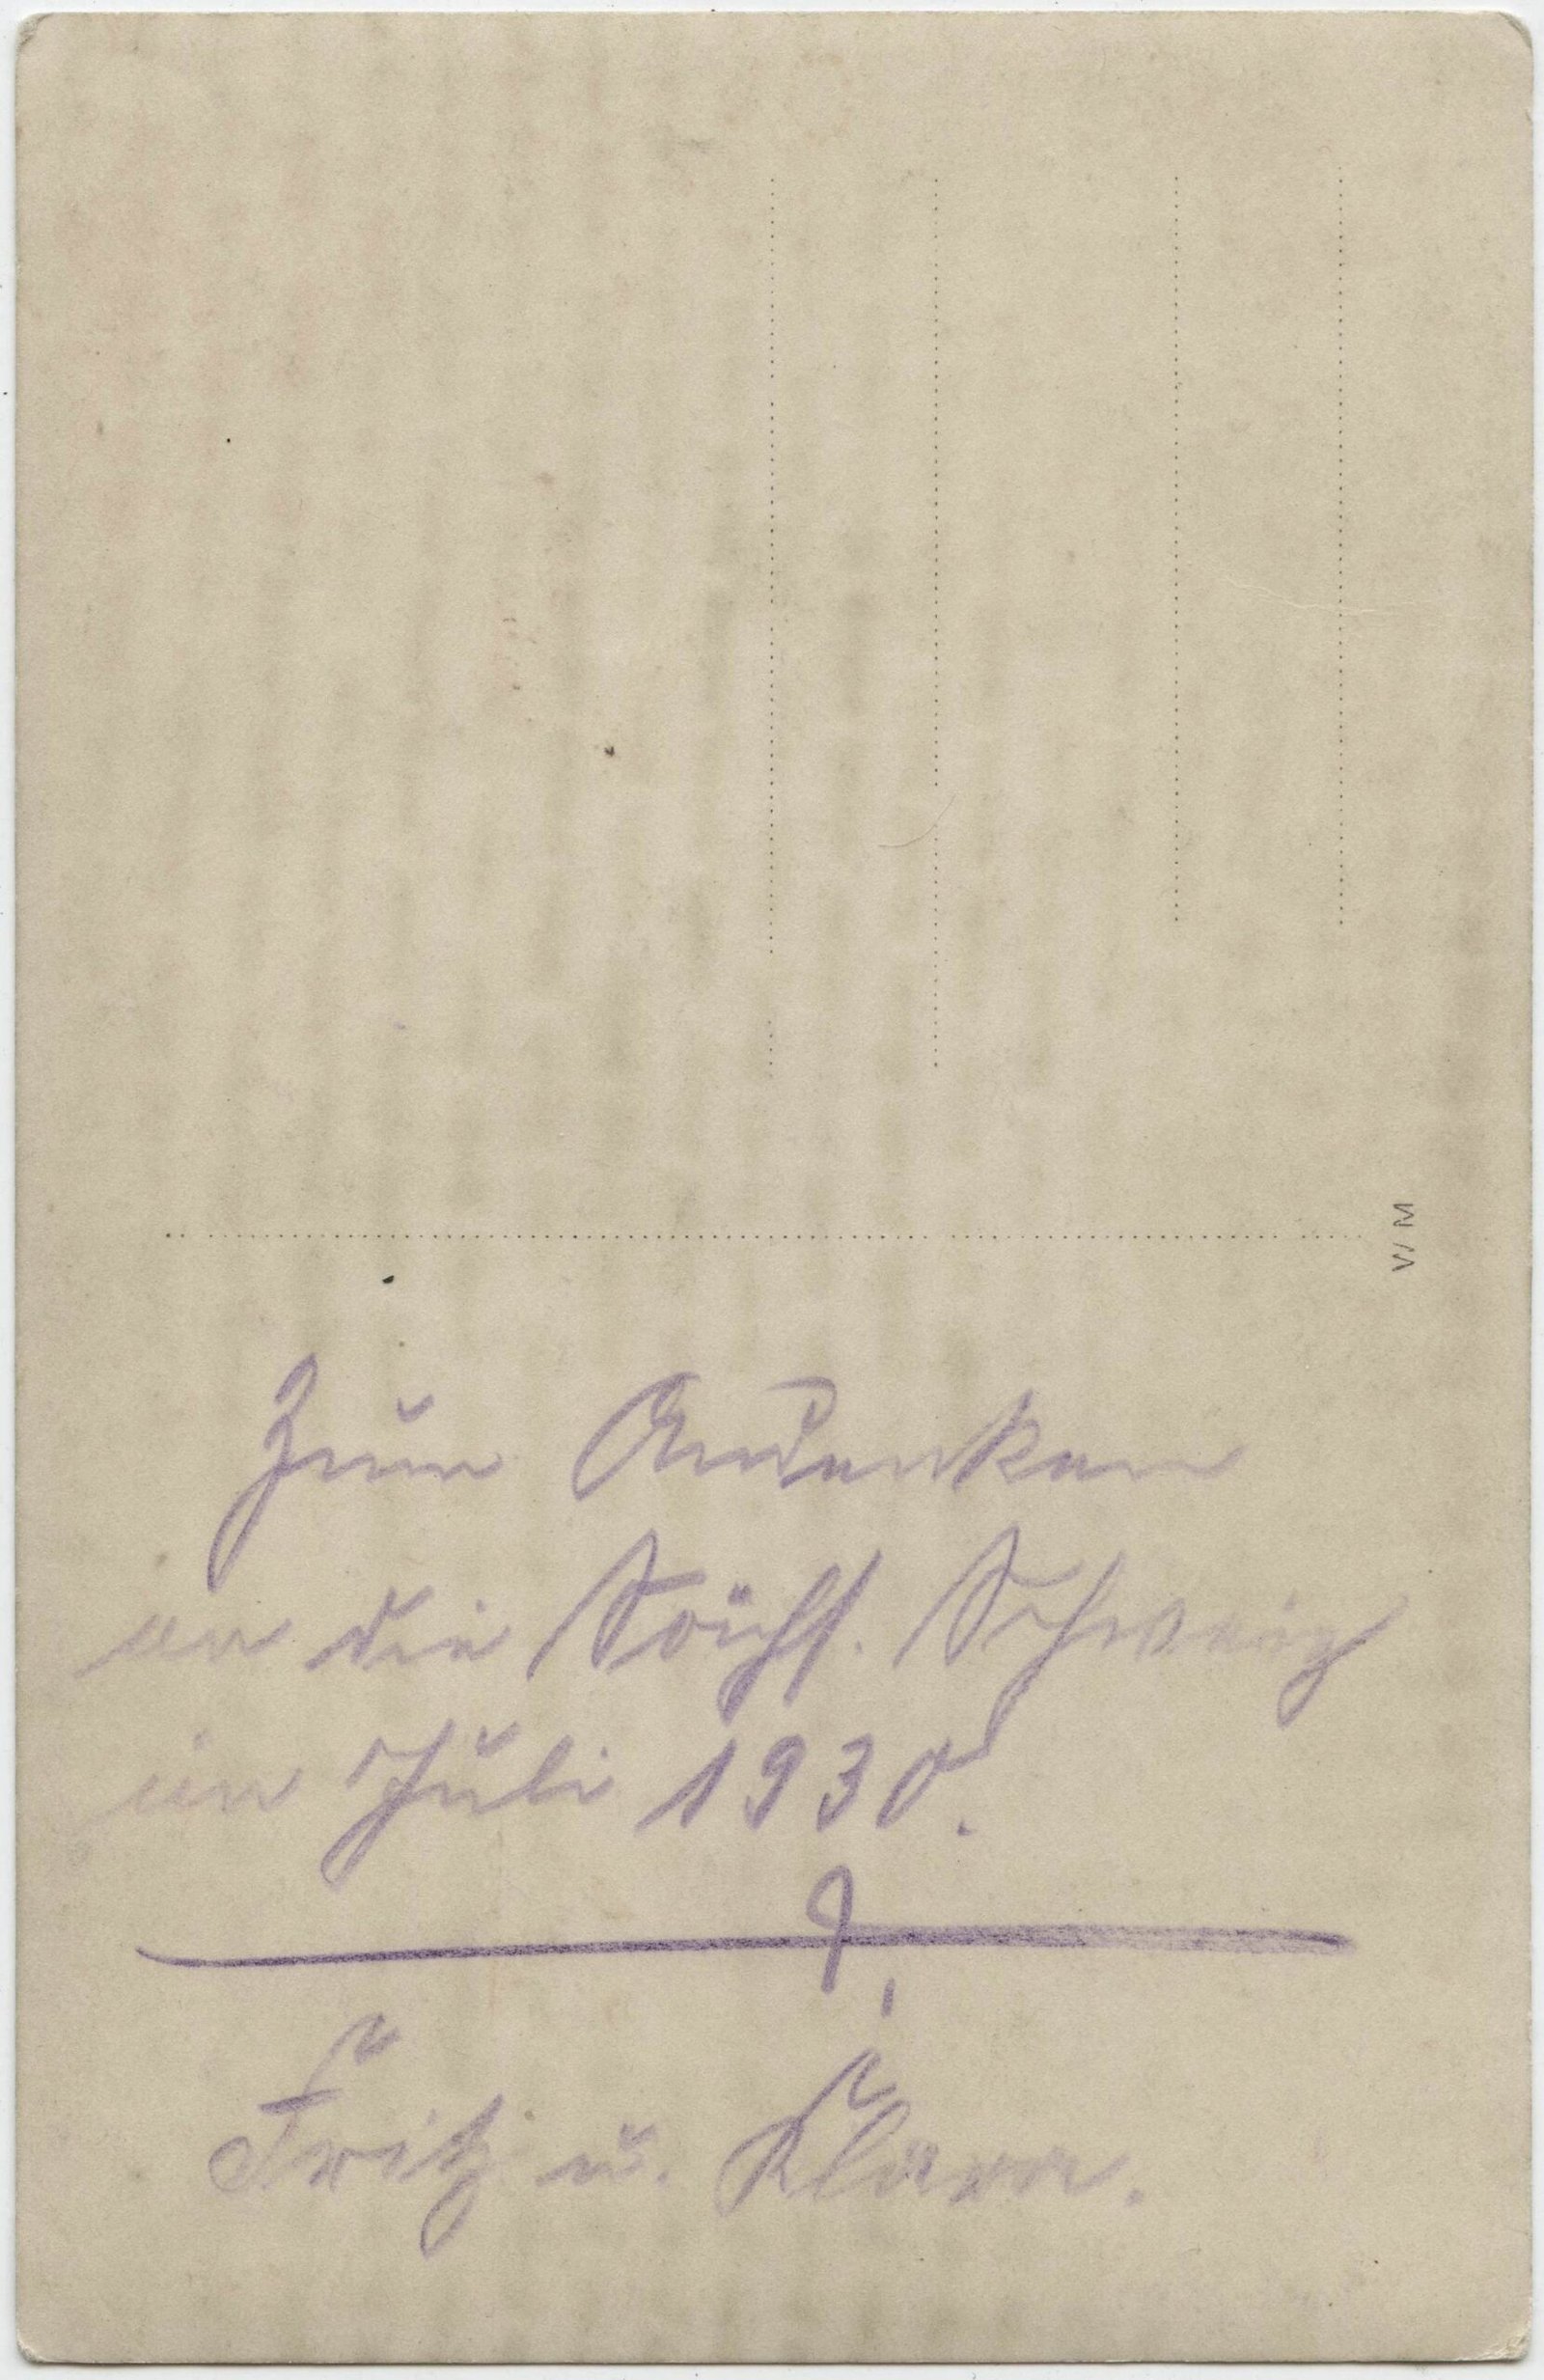 W M
Zum Andenken
an die Sächs. Schweiz
im Juli 1930.
Fritz u. Klara.